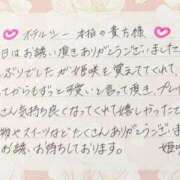 ホテルシー 本館の貴方様
日はお誘い頂きありがとうございました
ぶりでしたが姫咲を覚えててくれて、
てからもずっと可愛いと言って頂き、プレー
さん気持ち良くなってくれて嬉しかったで
物やスイーツなどたくさんありがとうございま
お誘いお待ちしております。
姫咲